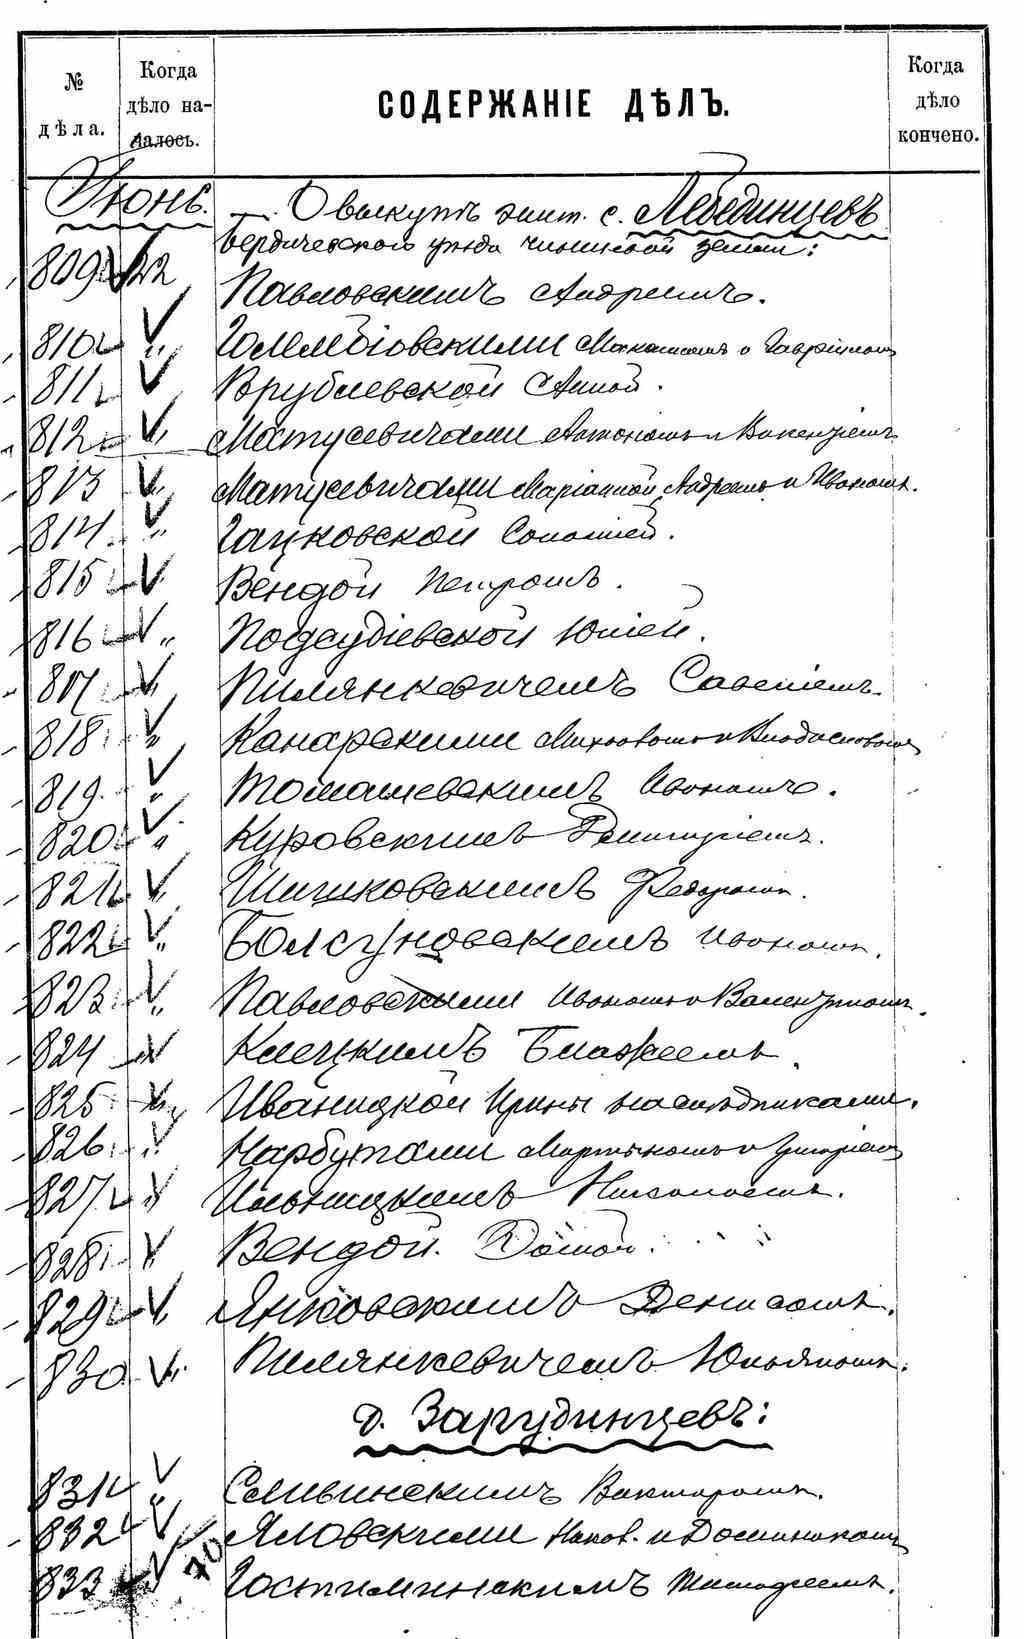 № дѣла. Когда дѣло на-чалось. СОДЕРЖАНІЕ ДѢЛЪ. Когда дѣло кончено.
Іюнь.
О выкупѣ жит. с. Лебединцевъ
Бердичевскаго уѣзда чиншевой земли:
809 22 Павловскимъ Андреемъ.
810 " Голембіовскими
811 Врублевской Анной.
812 " Матусевичами Антономъ и Викентіемъ
813 " Матусевичами Маріанной, Андреемъ и Иваномъ.
814 " Гацковской Соломіей.
815 Вендой Петромъ.
816 " Подсудіевской Юліей.
817 " Пилянкевичемъ Савеліемъ.
818 " Канарскими
819 " Томашевскимъ Иваномъ.
820 " Куровскимъ
821 " Шишковскимъ Федоромъ.
822 " Болсуновскимъ Иваномъ.
823 " Павловскими Иваномъ и Валентиномъ.
824 " Клецкимъ Блажеемъ.
825 " Иваницкой Ирины наслѣдниками.
826 " Нарбутами Мартыномъ и
827 " Ильницкимъ Николаемъ.
828 " Вендой.
829 " Янковскимъ Денисомъ.
830 " Пилянкевичемъ Юльяномъ.
д. Зарудинцевъ:
831 " Селивинскимъ Викторомъ.
832 Яловскими и Доминикомъ
833 70 Гостиминскимъ Тимофеемъ.